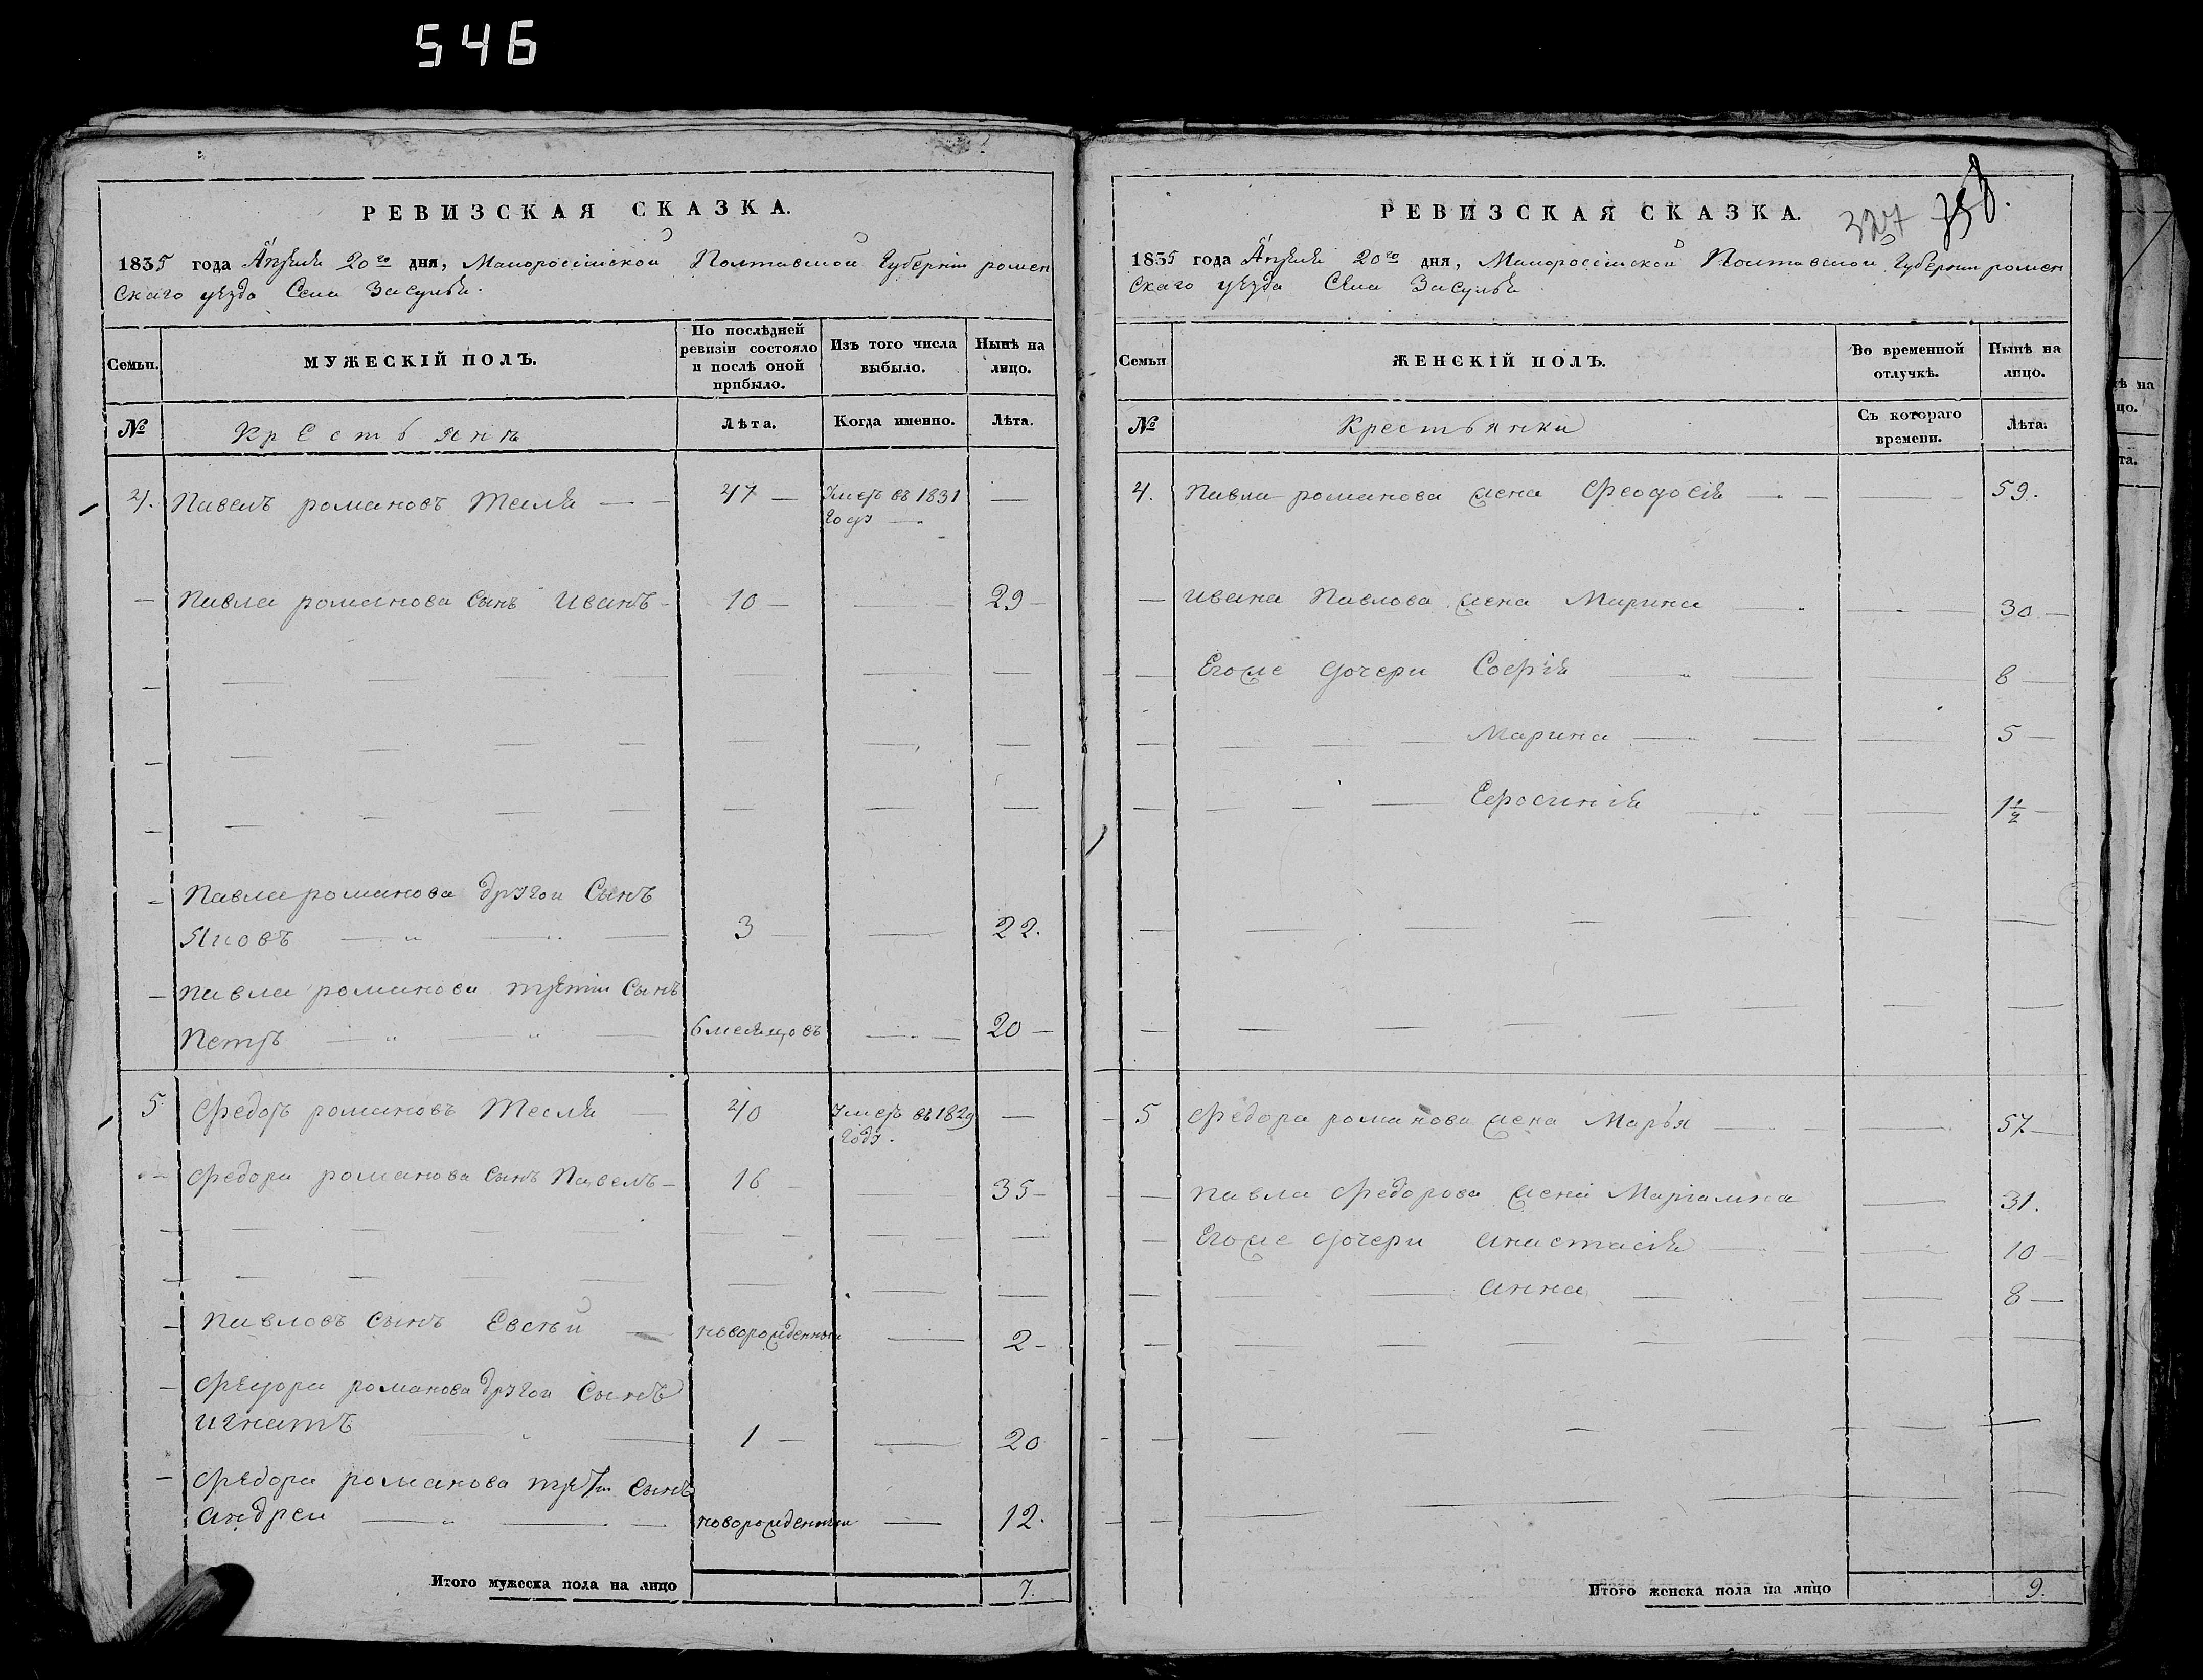 546
РЕВИЗСКАЯ СКАЗКА.
1835 года Апреля 20го дня, Малороссийской Полтавской Губернии ромен
скаго уезда Села Засулья.
Семьи. МУЖЕСКІЙ ПОЛЪ. По послѣдней ревизіи состояло и послѣ оной прибыло. Изъ того числа выбыло. Нынѣ на лицо.
№ Крестьянъ Лѣта. Когда именно. Лѣта.
4. Павелъ романовъ Тесля — 47 — Умеръ въ 1831 —
Году —
— Павла романова Сынъ Иванъ — 10 — — 29 —
— Павла романова другои Сынъ
Яковъ — 3 — — 22.
— Павла романова третiи Сынъ
Петръ — 6 месяцовъ — 20 —
5 Федоръ романовъ Тесля — 40 Умеръ въ 1829 —
Году.
— Федора романова Сынъ Павелъ — 16 — — 35 —
— Павловъ Сынъ Евсѣй — новорожденныи — 2 —
— Федора романова другои Сынъ
Игнатъ — 1 — — 20
— Федора романова третiи Сынъ
Андреи — новорожденныи — 12.
Итого мужеска пола на лицо 7.
РЕВИЗСКАЯ СКАЗКА. 327
1835 года Апреля 20го дня, Малороссийской Полтавской Губернии ромен
скаго уезда Села Засулья
Семьи ЖЕНСКІЙ ПОЛЪ. Во временной отлучкѣ. Нынѣ на лицо.
№ Крестьянки Съ котораго времени. Лѣта.
4. Павла романова жена Феодосiя — — 59.
— Ивана Павлова жена Марина — 30 —
— Егоже дочери Софiя — — 8 —
— Марина — — 5 —
— Ефросинiя — — 1½ —
5 Федора романова жена Марья — — 57 —
— Павла Федорова жена Марiамна — 31.
— Егоже дочери Анастасiя — — 10 —
— Анна — — 8 —
Итого женска пола на лицо 9.